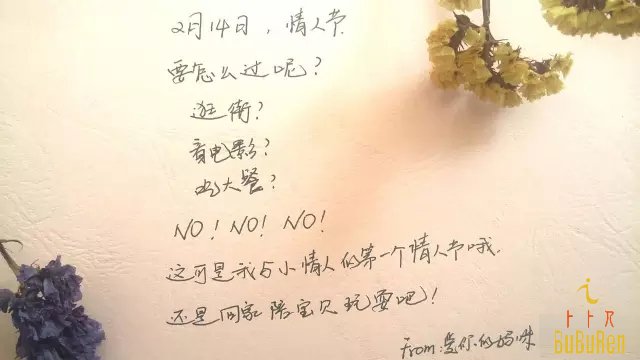 2月14日，情人节
要怎么过呢？
逛街？
看电影？
吃大餐？
NO！NO！NO！
这可是我与小情人的第一个情人节哦.
还是回家陪宝贝玩耍吧！
From:爱你的妈咪
i
BuBuRen